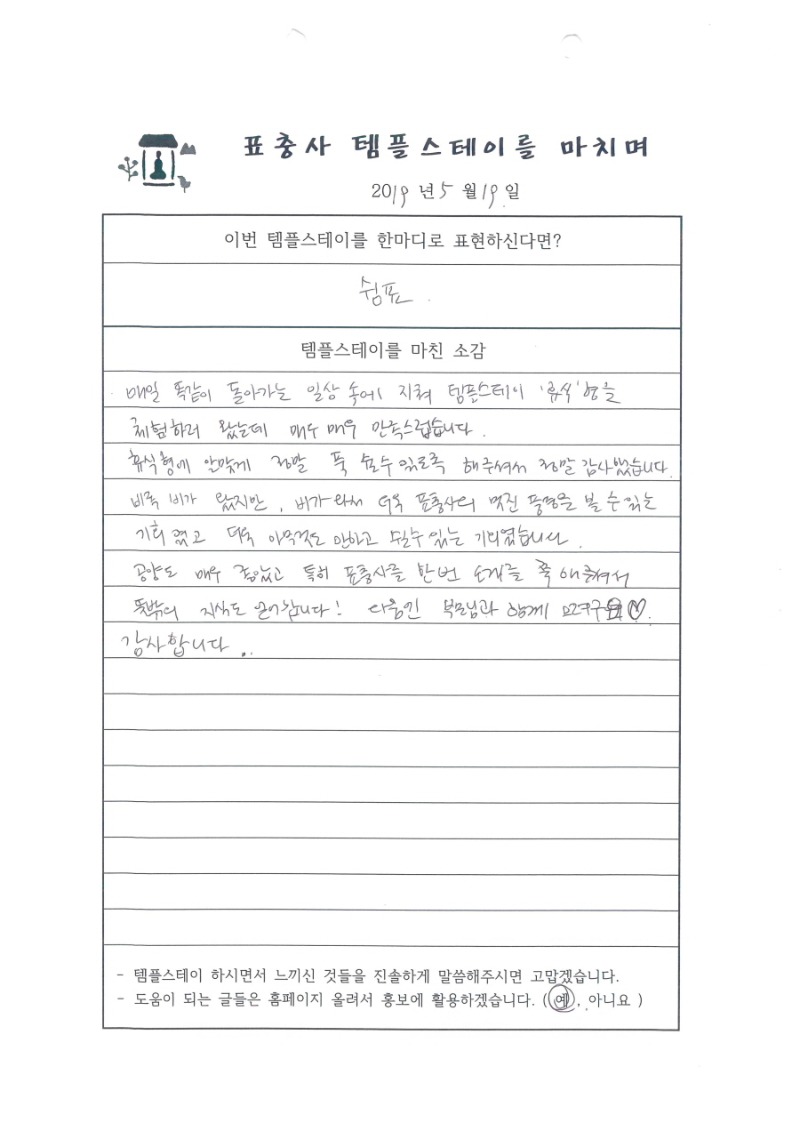 표충사 템플스테이를 마치며
2019년 5월 19일
이번 템플스테이를 한마디로 표현하신다면?
쉼표.
템플스테이를 마친 소감
매일 똑같이 돌아가는 일상 속에 지쳐 템플스테이 '휴식'형을
체험하러 왔는데 매우 매우 만족스럽습니다.
휴식형에 알맞게 정말 푹 쉴수 있도록 해주셔서 정말 감사했습니다.
비록 비가 왔지만, 비가와서 더욱 표충사의 멋진 풍경을 볼 수 있는
기회 였고 더욱 아무것도 안하고 쉴수 있는 기회였습니다.
공양도 매우 좋았고 특히 표충사를 한번 소개를 쭉 해주셔서
뜻밖의 지식도 얻어갑니다! 다음엔 부모님과 함께
감사합니다..
- 템플스테이 하시면서 느끼신 것들을 진솔하게 말씀해주시면 고맙겠습니다.
- 도움이 되는 글들은 홈페이지 올려서 홍보에 활용하겠습니다. ( 예, 아니요 )